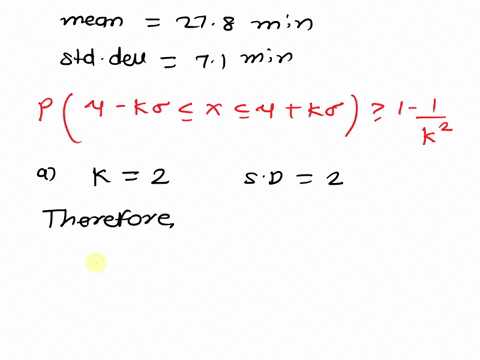 mean = 27.8 min
std.dev = 7.1 min
P(μ - kσ ≤ x ≤ μ + kσ) ≥ 1 - 1/k²
a) K = 2 S.D = 2
Therefore,